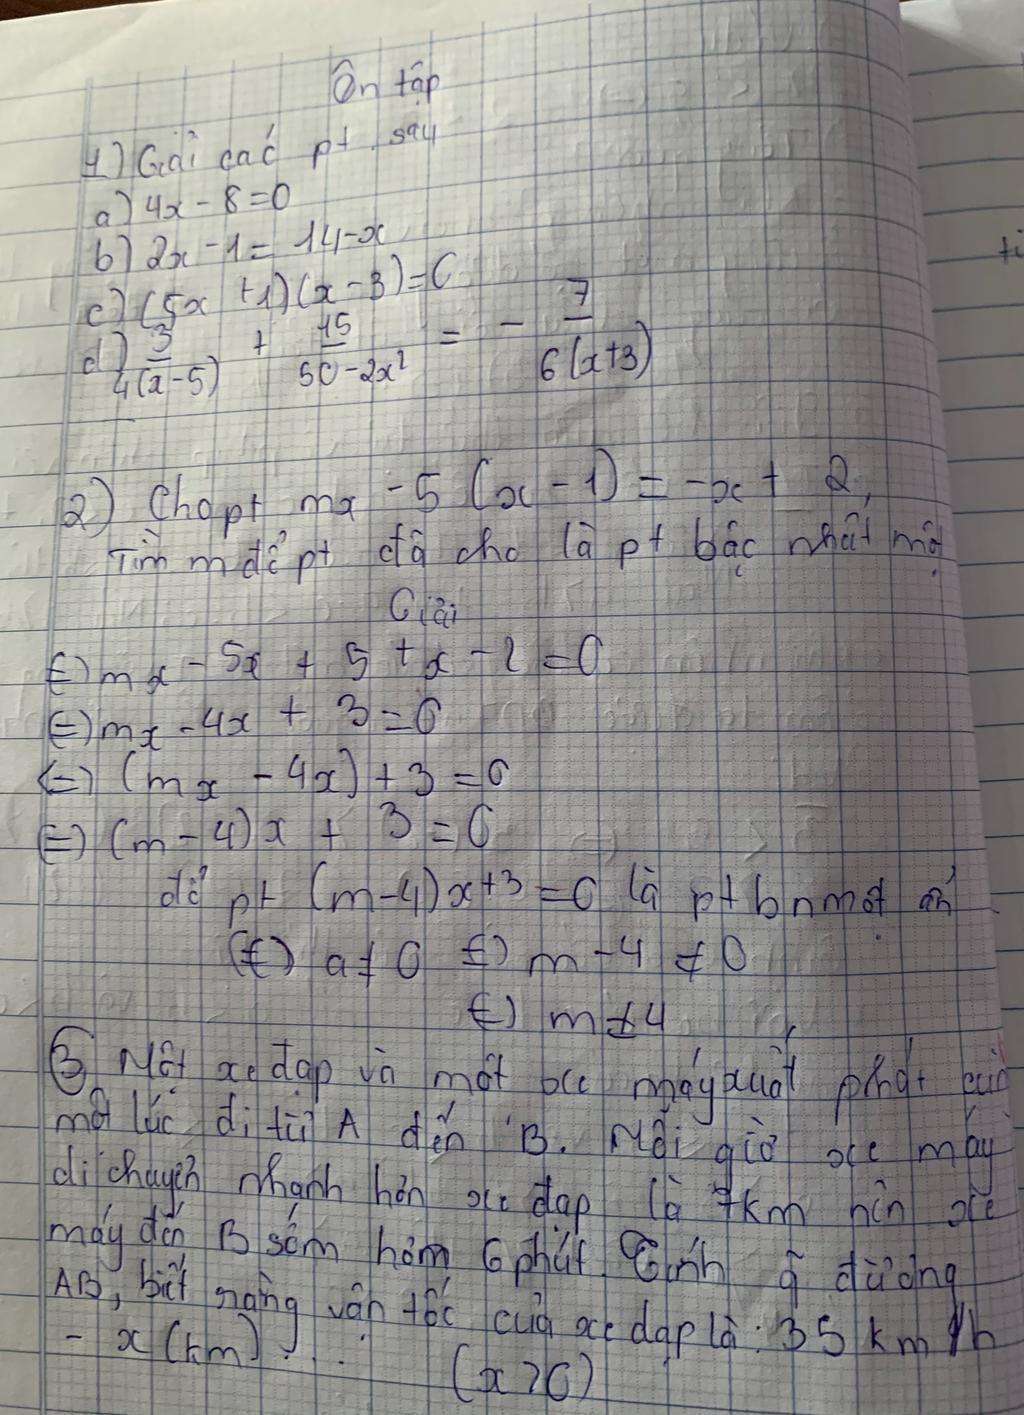 Ôn tập
1) Giải các pt sau
a) 4x - 8 = 0
b) 2x - 1 = 14 - x
c) (5x + 1)(x - 3) = 0
d) 3/4(x-5) + 15/50-2x² = - 7/6(x+3)
2) Cho pt mx - 5 (x - 1) = -x + 2,
Tìm m để pt đã cho là pt bậc nhất một
Giải
(=) mx - 5x + 5 + x - 2 = 0
(=) mx - 4x + 3 = 0
(=) (mx - 4x) + 3 = 0
(=) (m - 4)x + 3 = 0
để pt (m-4)x+3 = 0 là pt bn một ẩn
(=) a ≠ 0 (=) m - 4 ≠ 0
(=) m ≠ 4
3) Một xe đạp và một xe máy xuất phát cùng
một lúc đi từ A đến B. Mỗi giờ xe máy
di chuyển nhanh hơn xe đạp là 7km nên xe
máy đến B sớm hơn 6 phút. Tính q đường
AB, biết rằng vận tốc của xe đạp là: 35 km/h
- x (km) . . . . (x > 0)